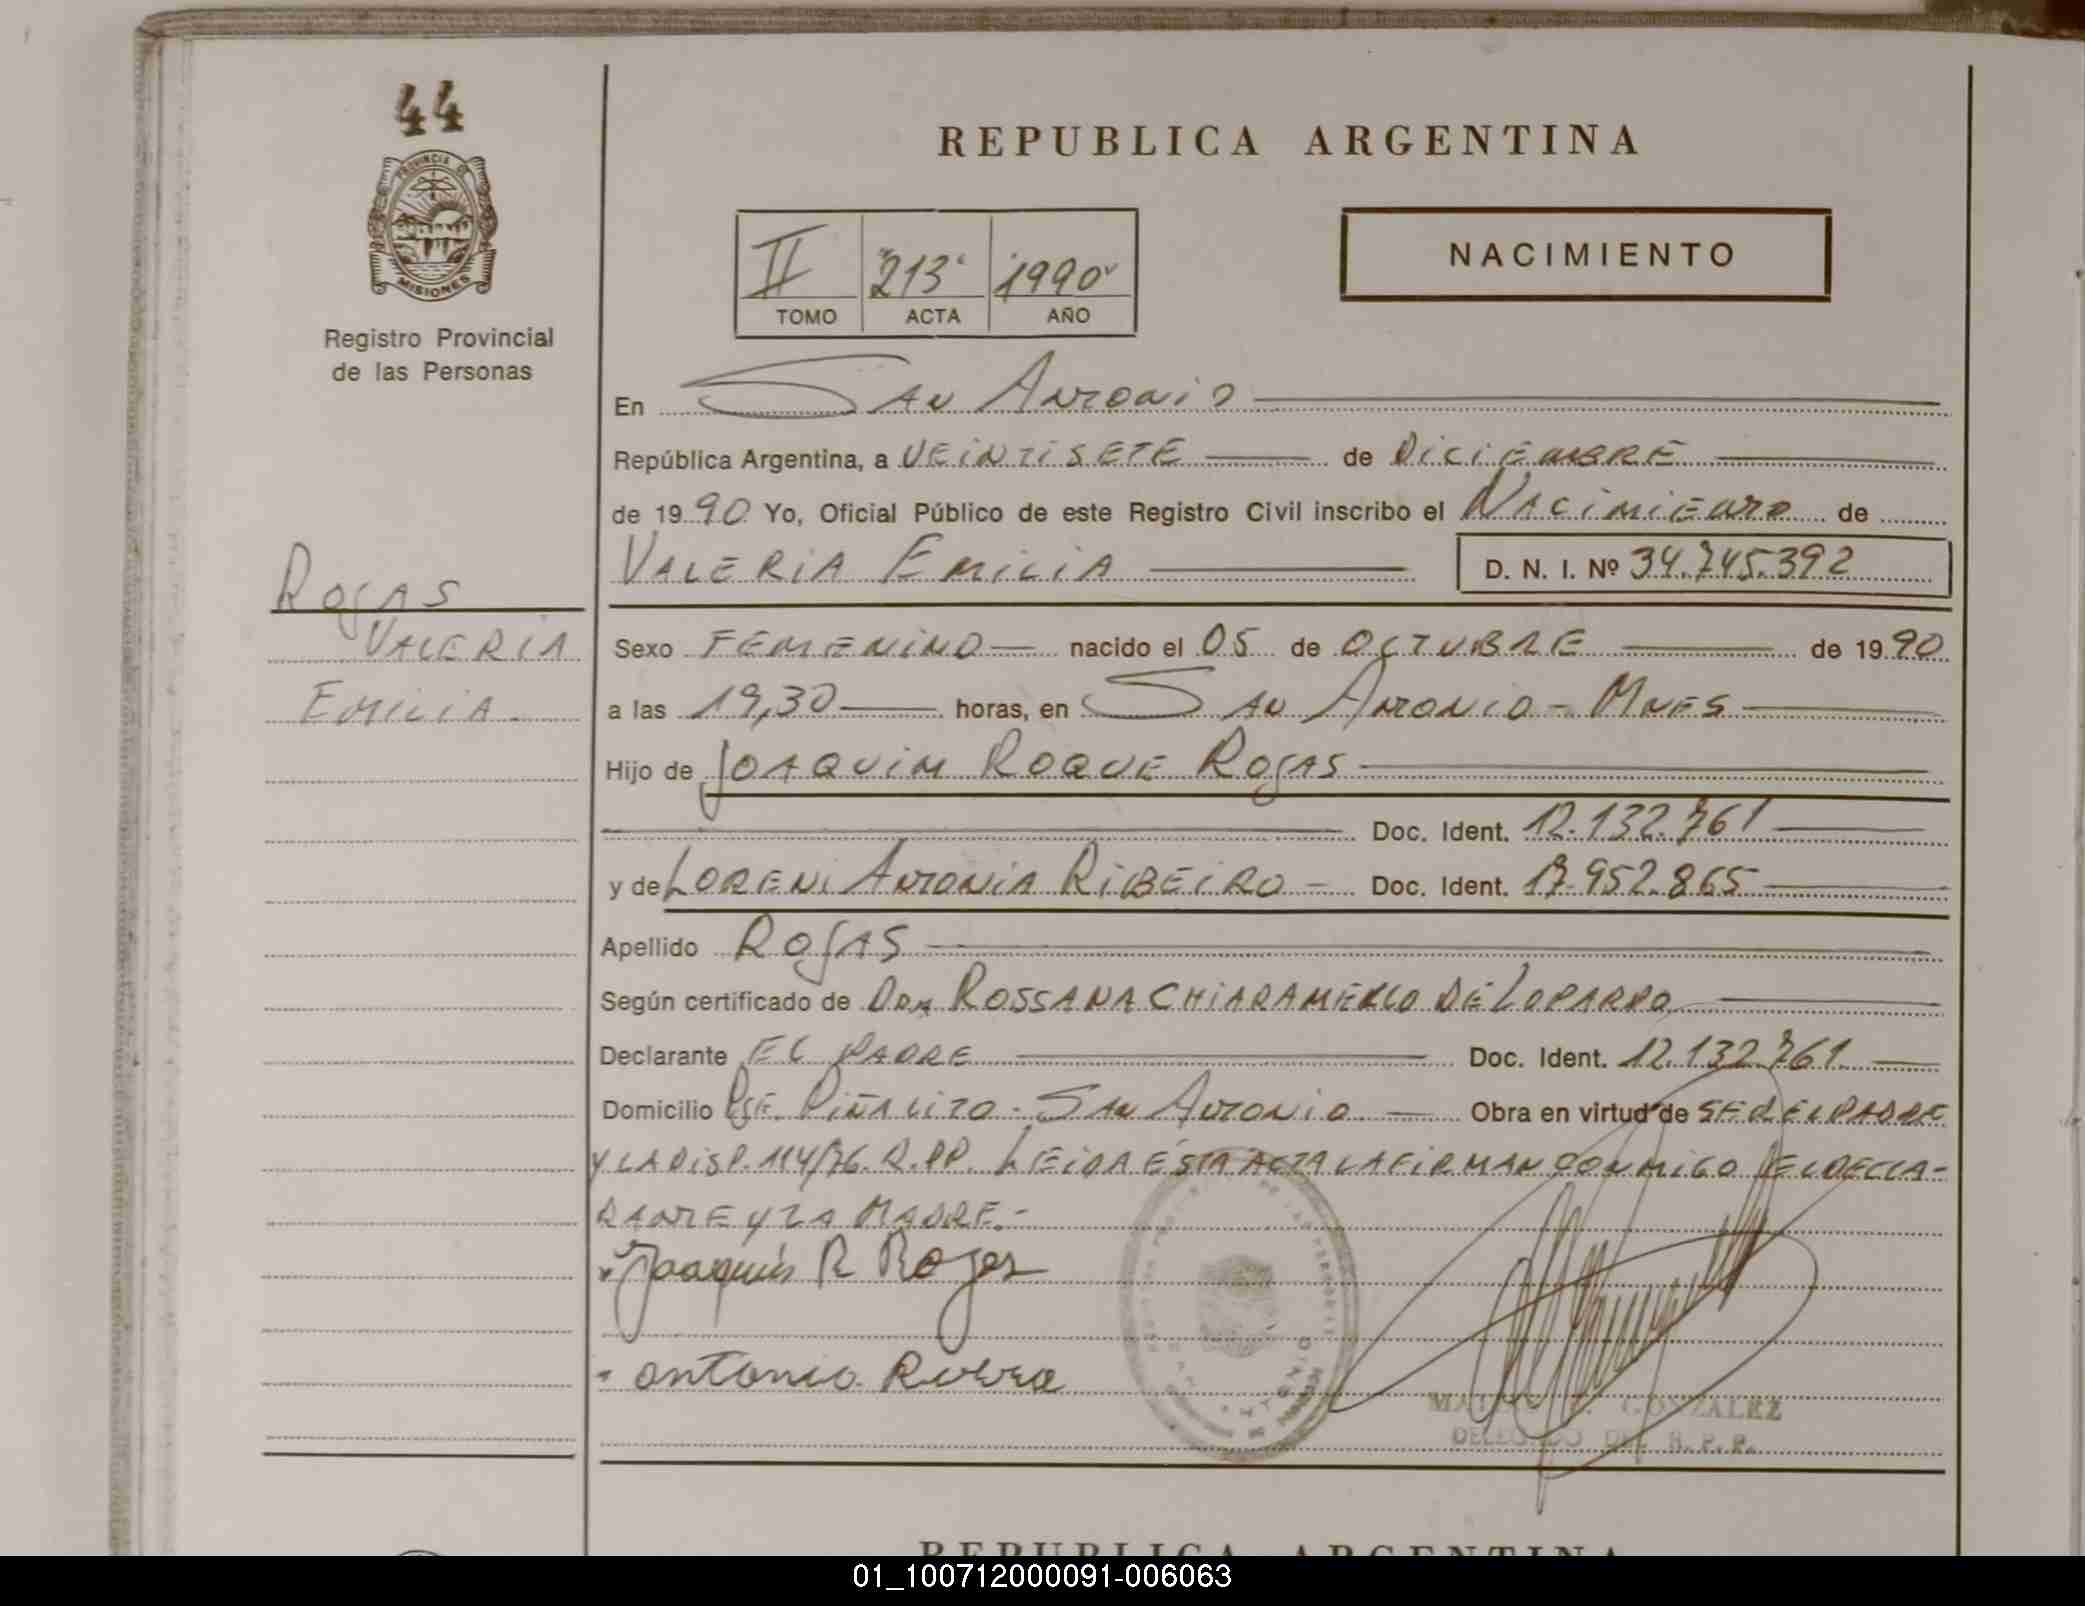 44
PROVINCIA DE
MISIONES
Registro Provincial
de las Personas
ROJAS
VALERIA
EMILIA
REPUBLICA ARGENTINA
II 213 1990
TOMO ACTA AÑO
NACIMIENTO
En SAN ANTONIO
República Argentina, a VEINTISETE de DICIEMBRE
de 1990 Yo, Oficial Público de este Registro Civil inscribo el NACIMIENTO de
VALERIA EMILIA D. N. I. Nº 34.745.392
Sexo FEMENINO nacido el 05 de OCTUBRE de 1990
a las 19,30 horas, en SAN ANTONIO - MNES
Hijo de JOAQUIN ROQUE ROJAS
Doc. Ident. 12.132.761
y de LORENI ANTONIA RIBEIRO - Doc. Ident. 17.952.865
Apellido ROJAS
Según certificado de DRA ROSSANA CHIARAMELLO DE LOPARDO
Declarante EL PADRE Doc. Ident. 12.132.761
Domicilio PJE. PIÑALITO - SAN ANTONIO Obra en virtud de SER EL PADRE
Y LA DISP. 114/76. R.PP. LEIDA ÉSTA ACTA LA FIRMAN CONMIGO EL DECLA-
RANTE Y LA MADRE.-
Joaquín R Rojas
antonia
GONZALEZ
DELEGADO DEL R.P.P.
REPUBLICA ARGENTINA
01_100712000091-006063